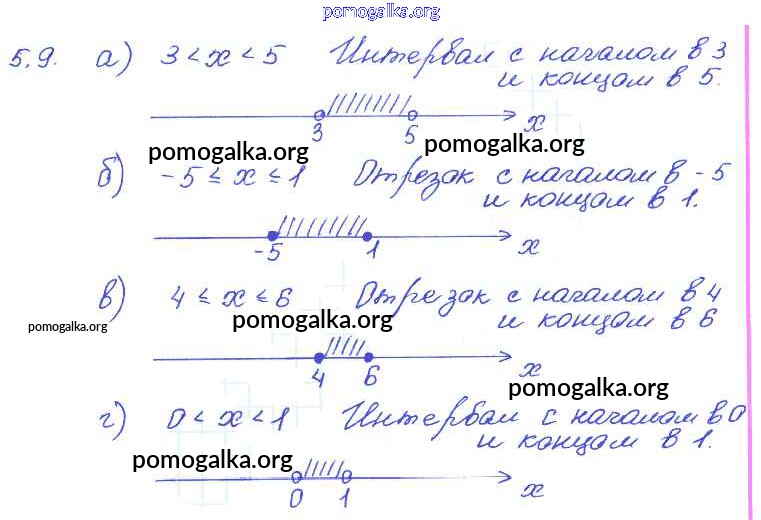 pomogalka.org
5.9. а) 3 < x < 5 Интервал с началом в 3
и концом в 5.
3 5 x
pomogalka.org pomogalka.org
б) -5 ≤ x ≤ 1 Отрезок с началом в -5
и концом в 1.
-5 1 x
в) 4 ≤ x ≤ 6 Отрезок с началом в 4
pomogalka.org pomogalka.org и концом в 6
4 6 x
pomogalka.org
г) 0 < x < 1 Интервал с началом в 0
и концом в 1.
pomogalka.org
0 1 x